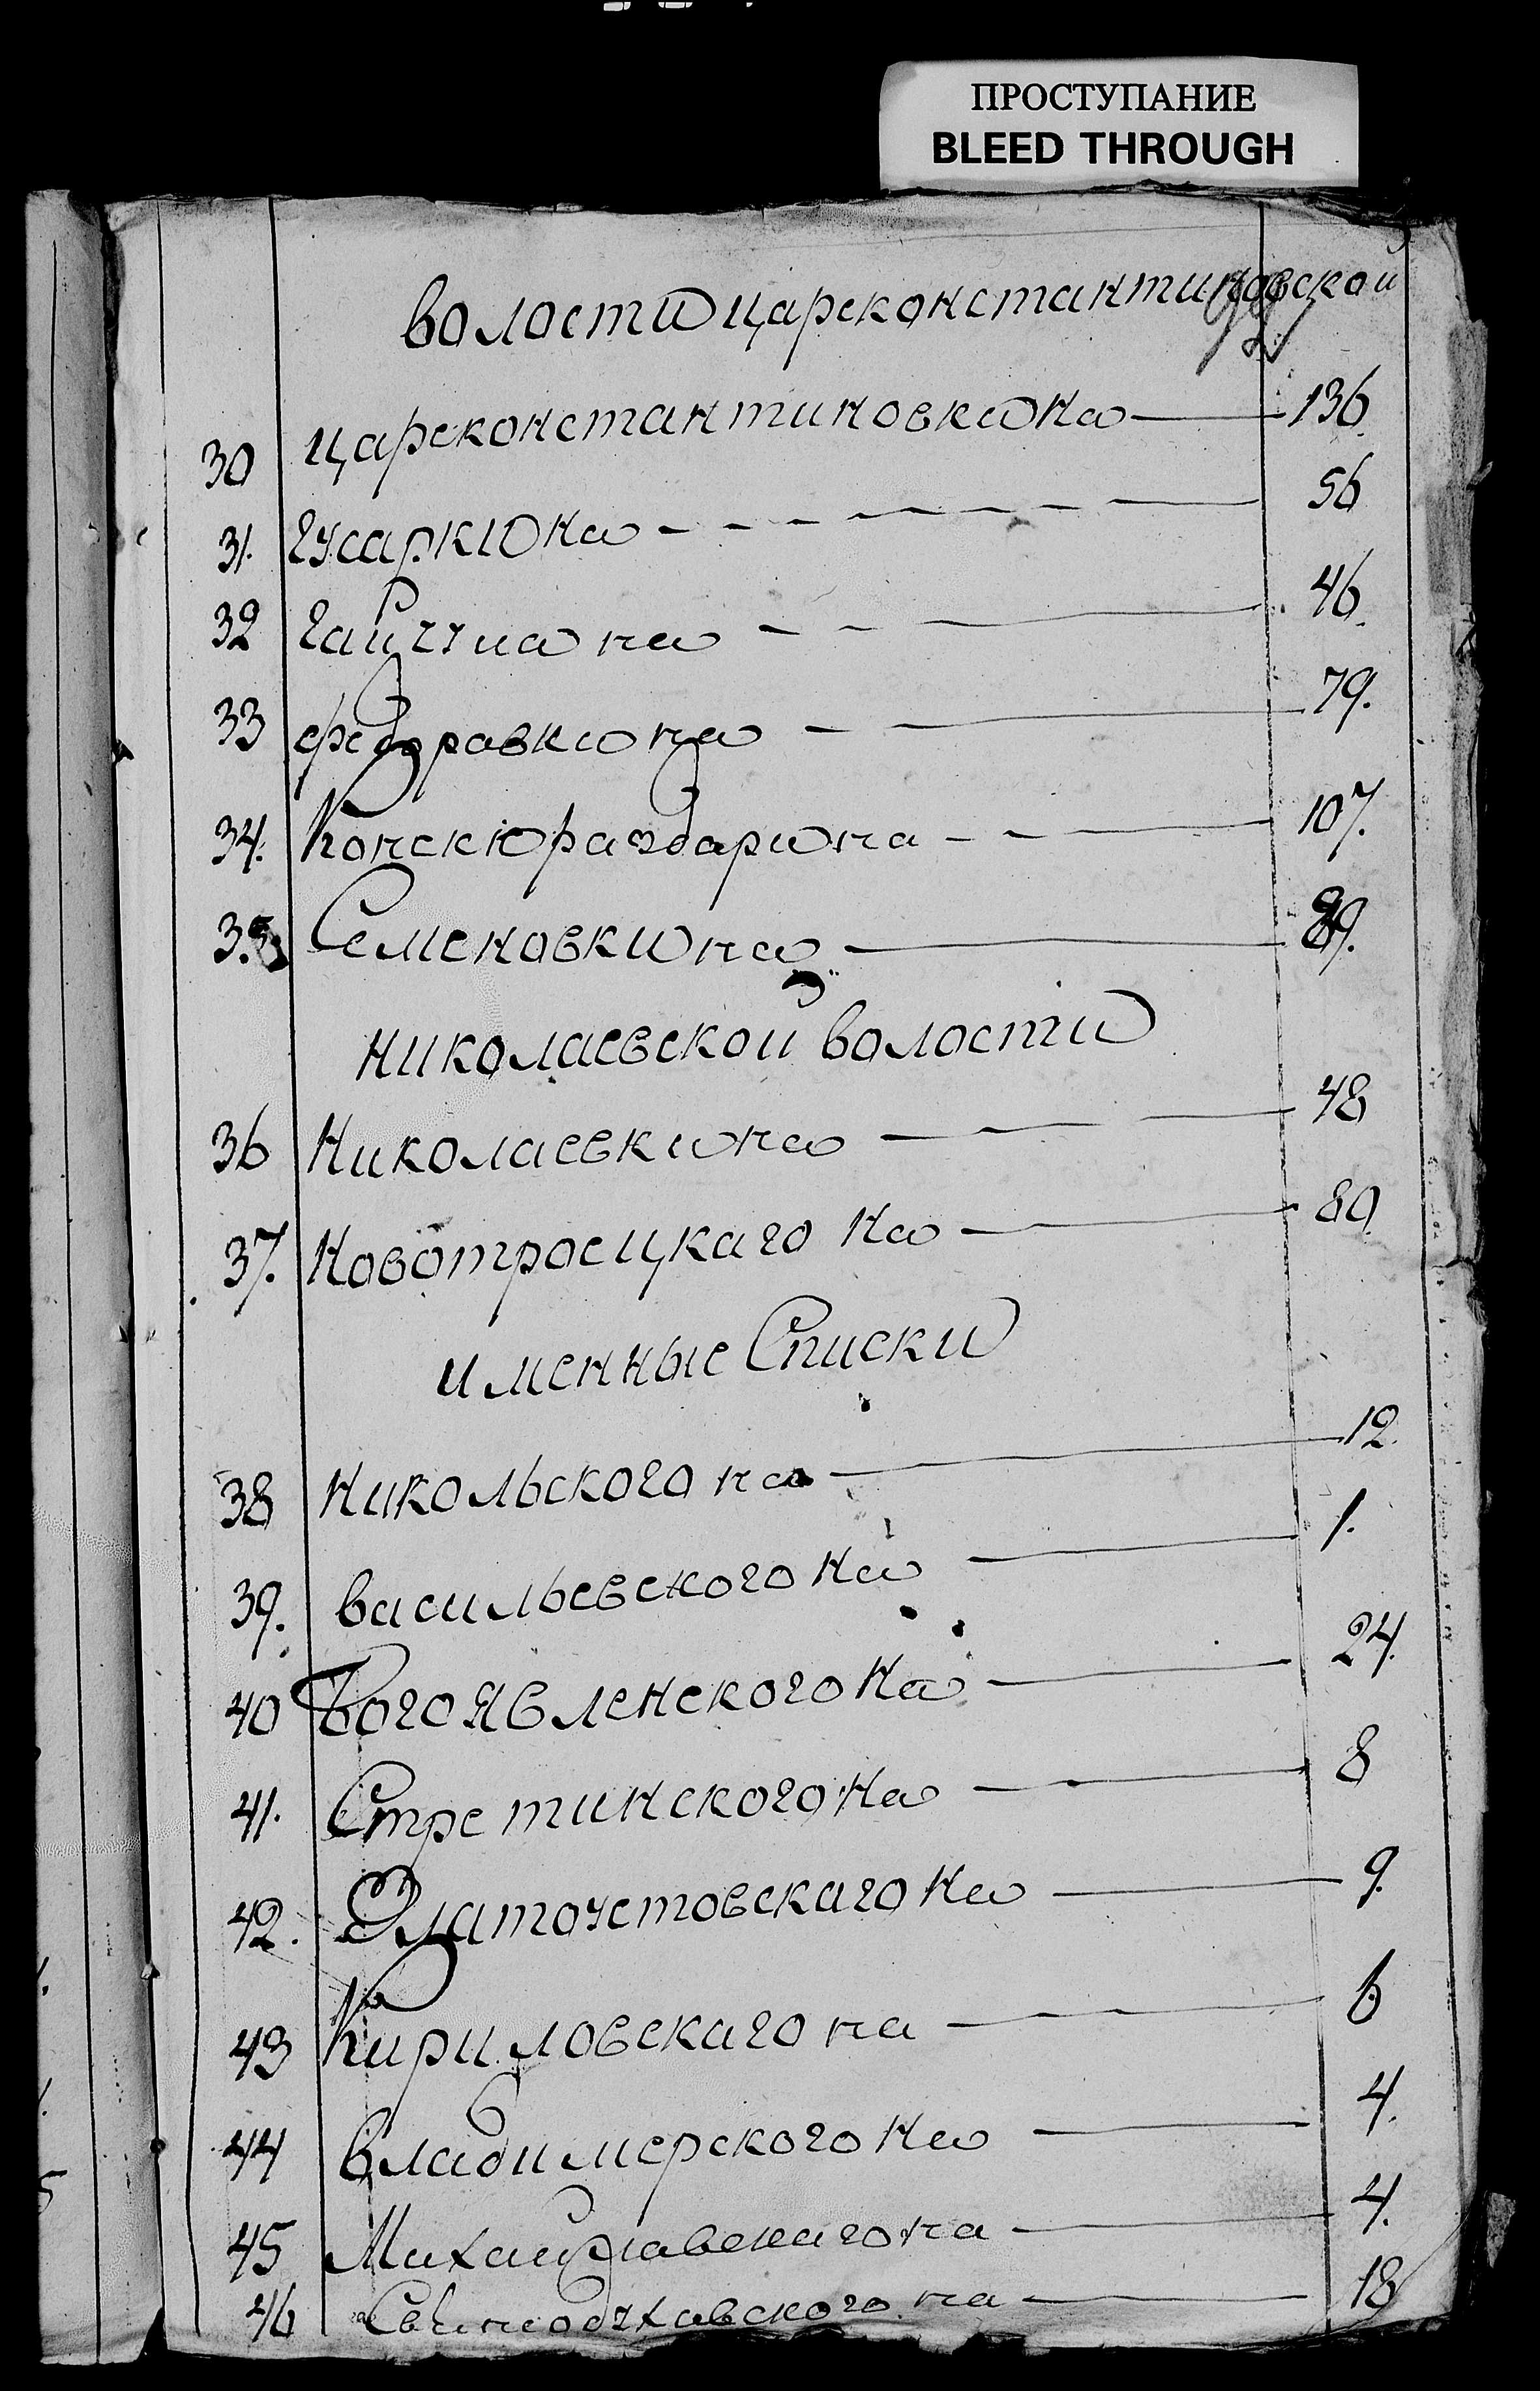 ПРОСТУПАНИЕ
BLEED THROUGH
волости цареконстантиновской
30 цареконстантиновки на 136.
31. гусарки на 56
32 гайчула на 46.
33 федоравки на 79.
34. Конскираздари на 107.
35 Семеновки на 89.
николаевской волости
36 Николаевки на 48
37. Новотроецкаго на 80.
именные Списки
38 Никольского на 12.
39. васильевского на 1.
40 Богоявленского на 24.
41. Стретинского на 8
42. Златоустовскаго на 9.
43 Кириловскаго на 6
44 владимерского на 4.
45 Михайлавскаго на 4.
46 на 18